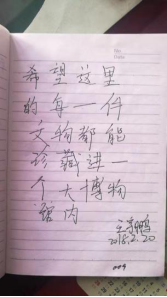 希望这里
的每一件
文物都能
珍藏进一
个大博物
馆内
2018.2.20
009